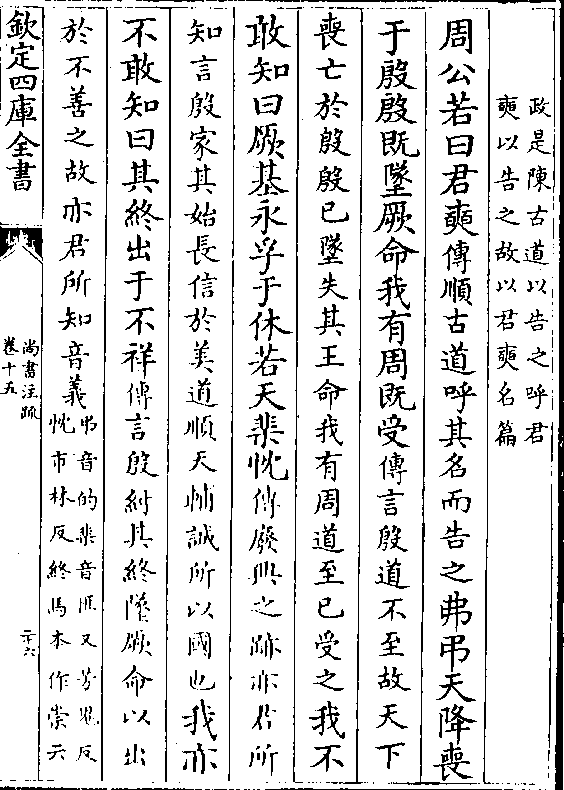 政是陳古道以告之呼君
奭以告之故以君奭名篇
周公若曰君奭傳順古道呼其名而告之弗弔天降喪
于殷殷既墜厥命我有周既受傳言殷道不至故天下
喪亡於殷殷已墜失其王命我有周道至已受之我不
敢知曰厥基永孚于休若天棐忱傳廢興之跡亦君所
知言殷家其始長信於美道順天輔誠所以國也我亦
不敢知曰其終出于不祥傳言殷紂其終墜厥命以出
於不善之故亦君所知音義
弔音的棐音匪又芳鬼反
忱市林反終馬本作崇云
欽定四庫全書
尚書注疏
卷十五
二十六